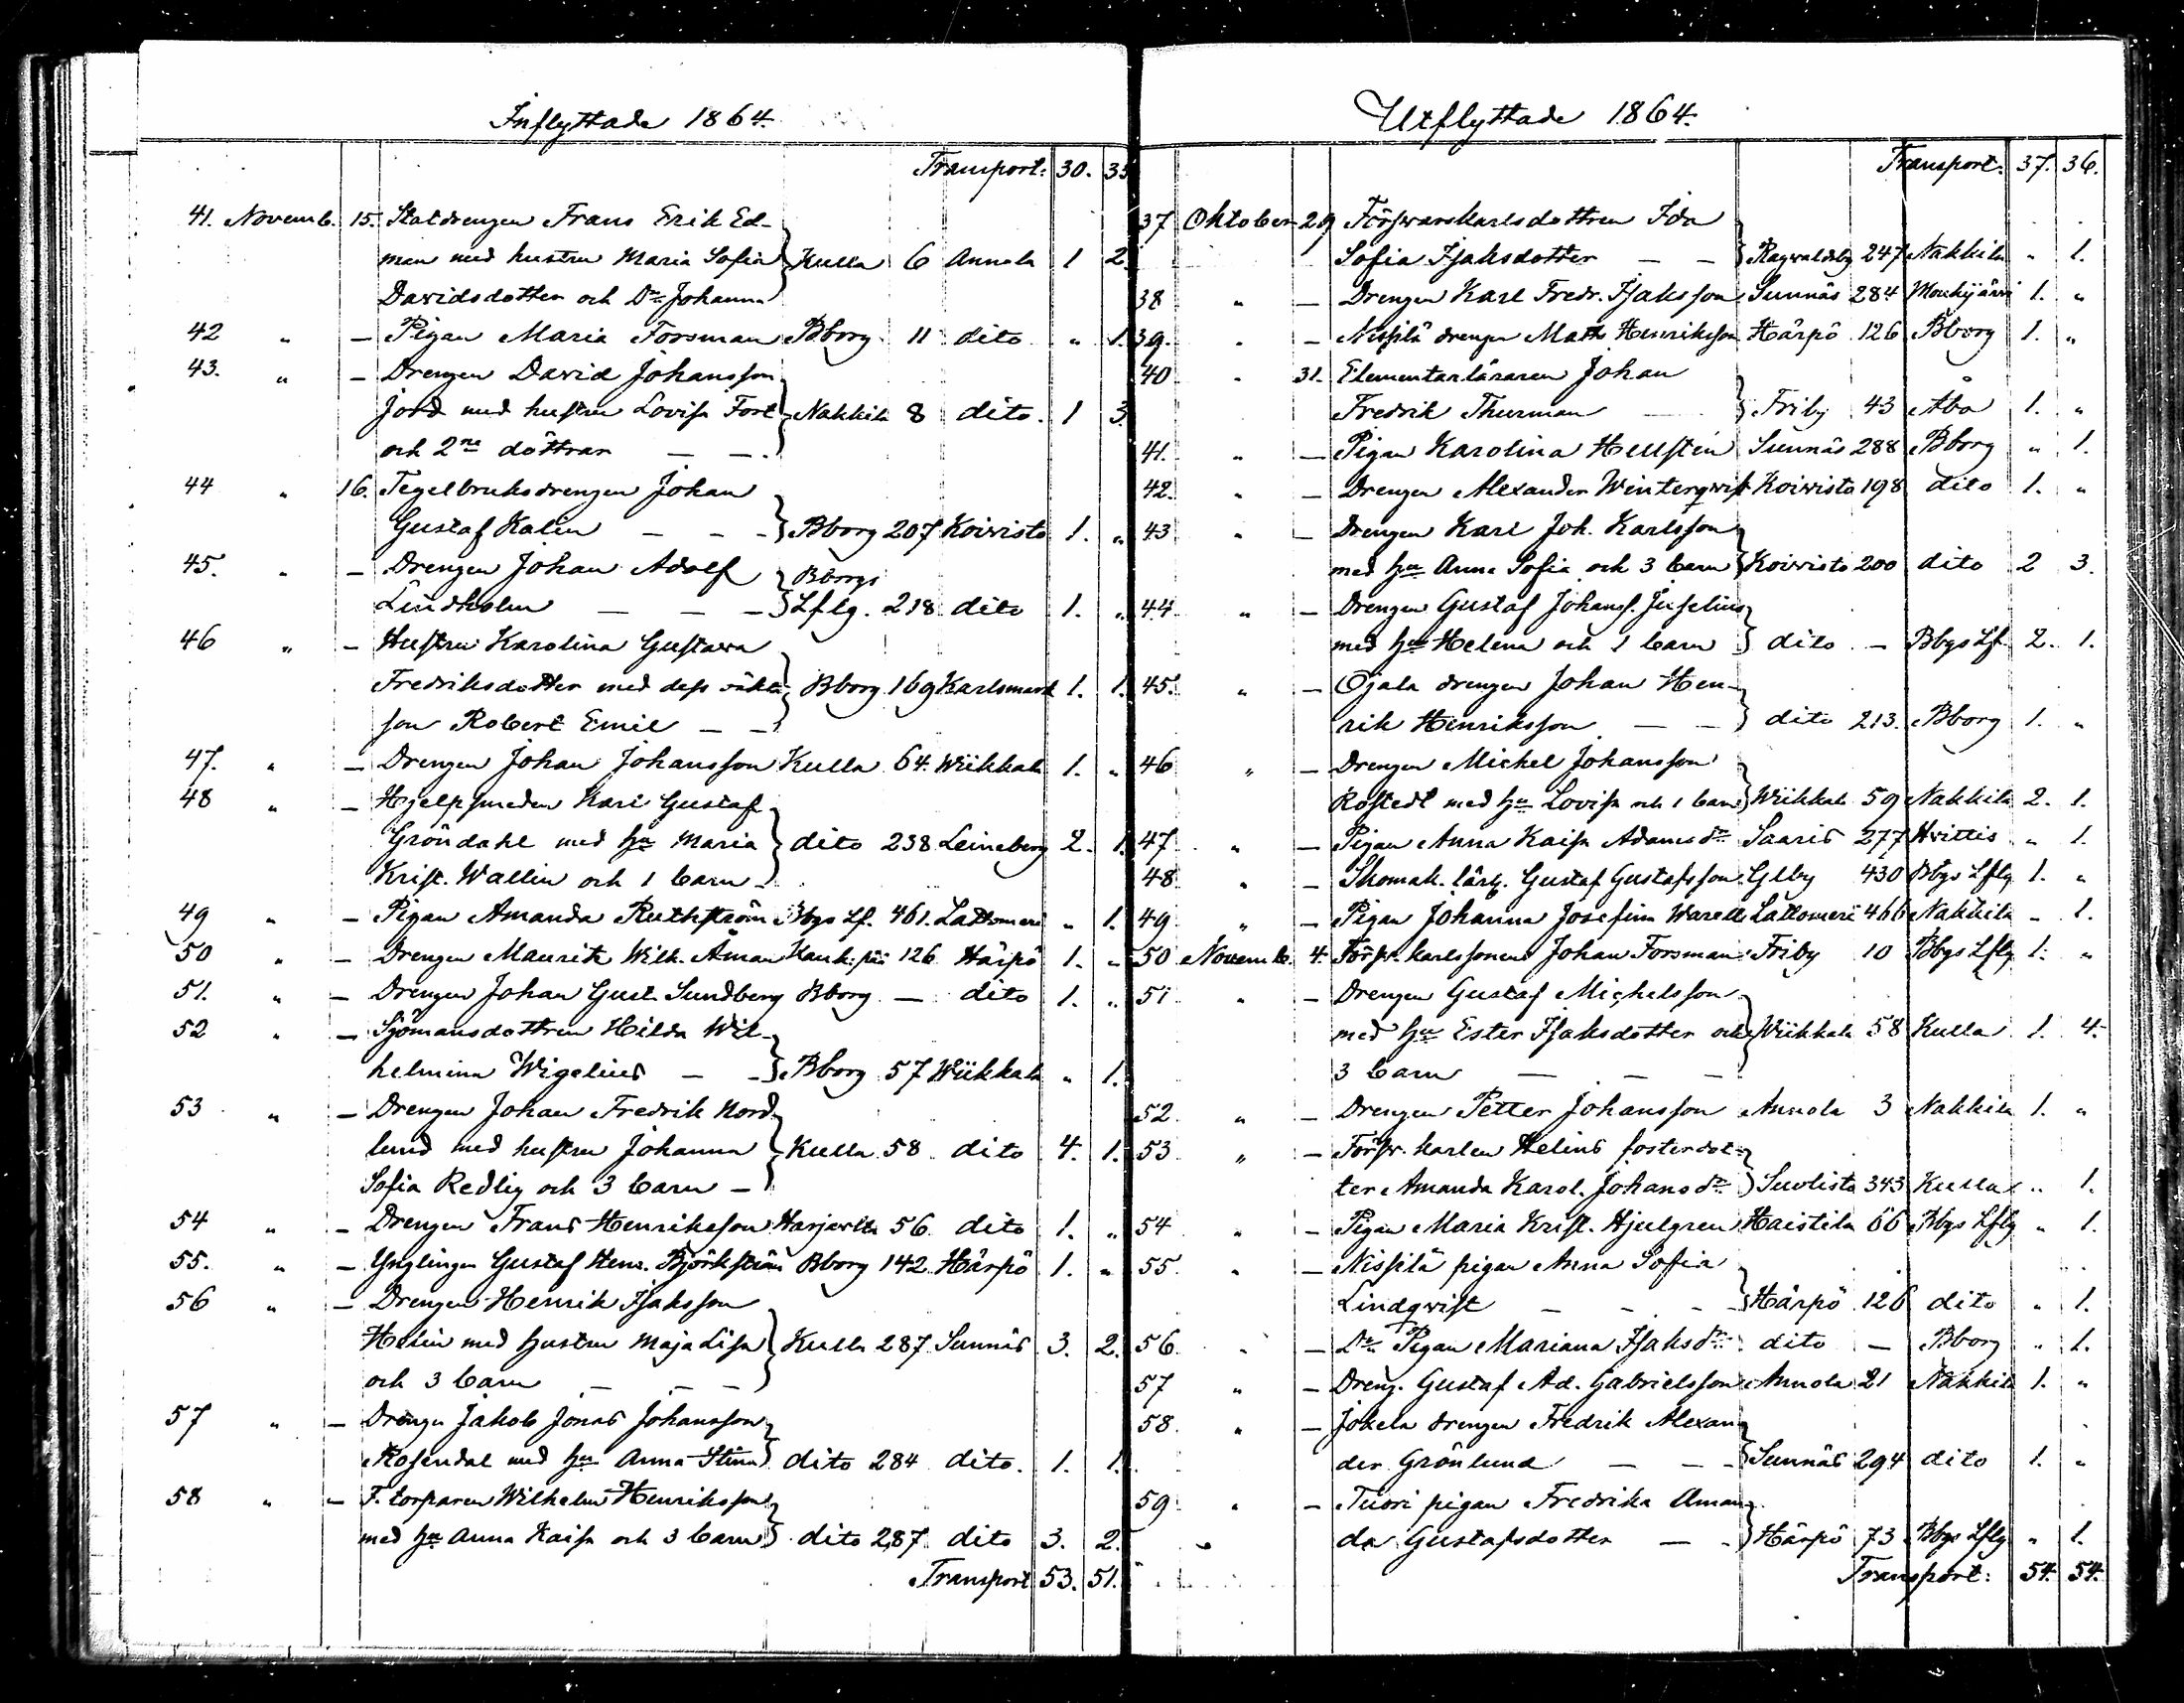 Inflyttade 1864.
Transport: 30. 35
41. Novemb. 15. Statdrengen Frans Erik Ed-
man med hustru Maria Sofia } Kulla 6 Annola 1 2.
Davidsdotter och Dr Johanna
42 " — Pigan Maria Forsman Bborg 11 dito " 1.
43. " — Drengen David Johansson
Jord med hustru Lovisa Fort } Nakkila 8 dito. 1 3.
och 2ne döttrar — —
44 " 16. Tegelbruksdrengen Johan
Gustaf Kalin — — - } Bborg 207 Koivisto 1. "
45. " — Drengen Johan Adolf } Bborgs
Lindholm — — — } Lfslg. 218 dito 1. "
46 " — Hustru Karolina Gustava
Fredriksdotter med dess oäkta } Bborg 169 Karlsmark 1. 1.
son Robert Emil — —
47. " — Drengen Johan Johansson Kulla 64. Wiikkala 1. "
48 " — Hjelpsmeden Karl Gustaf
Gröndahl med hu Maria } dito 238 Leineberg 2. 1.
Krist. Wallin och 1 barn -
49 " — Pigan Amanda Ruthström Bbgs Lf. 461. Lattomeri " 1.
50 " — Drengen Maurits Wilh. Åman Kank:pää 126 Härpö 1. "
51. " — Drengen Johan Gust. Sundberg Bborg — dito 1. "
52 " — Sjömansdottren Hilda Wil-
helmina Wigelius — - } Bborg 57 Wiikkala " 1.
53 " — Drengen Johan Fredrik Nord-
lund med hustru Johanna } Kulla 58 dito 4. 1.
Sofia Redlig och 3 barn —
54 " — Drengen Frans Henriksson Harjavalta 56 dito 1. "
55. " — Ynglingen Gustaf Henr. Björkström Bborg 142 Härpö 1. "
56 " — Drengen Henrik Isaksson
Helin med hustru Maja Lisa } Kulla 287 Sunnäs 3. 2.
och 3 barn — — —
57 " — Drengen Jakob Jonas Johansson
Rosendal med hu Anna Stina } dito 284 dito. 1. 1.
58 " — F. torparen Wilhelm Henriksson
med hu Anna Kaisa och 3 barn } dito 287 dito 3. 2.
Transport 53. 51.
Utflyttade 1864.
Transport: 37. 36.
37 Oktober 29 Försvarskarlsdottren Ida
Sofia Isaksdotter — — } Ragvaldsby 247 Nakkila " 1.
38 " — Drengen Karl Fredr. Isaksson Sunnäs 284 Mouhijärvi 1. "
39. " — Nissilä drengen Matts Henriksson Härpö 126 Bborg 1. "
40 " 31. Elementarläraren Johan
Fredrik Thurman — } Friby 43 Åbo 1. "
41. " — Pigan Karolina Hellstén Sunnäs 288 Bborg " 1.
42. " — Drengen Alexander Winterqvist Koivisto 198 dito 1. "
43 " — Drengen Karl Joh. Karlsson
med hu Anna Sofia och 3 barn } Koivisto 200 dito 2 3.
44 " — Drengen Gustaf Johanss. Juselius
med hu Helena och 1 barn } dito — Bbgs Lf. 2. 1.
45. " — Ojala drengen Johan Hen-
rik Henriksson — — } dito 213. Bborg 1. "
46 " — Drengen Michel Johansson
Rostedt med hu Lovisa och 1 barn } Wiikkala 59 Nakkila 2. 1.
47 " — Pigan Anna Kaisa Adamsdr Saaris 277 Hvittis " 1.
48 " — Skomak. lärl. Gustaf Gustafsson Glby 430 Bbgs Lfslg 1. "
49 " — Pigan Johanna Josefina Warell Lattomeri 466 Nakkila - 1.
50 Novemb. 4. Försv. karlssonen Johan Forsman Friby 10 Bbgs Lfslg 1. "
51 " — Drengen Gustaf Michelsson
med hu Ester Isaksdotter och } Wiikkala 58 Kulla 1. 4.
3 barn — — —
52. " — Drengen Petter Johansson Annola 3 Nakkila 1. "
53 " — Försv. karlen Helins fosterdot-
ter Amanda Karol. Johansdr } Suolisto 343 Kulla " 1.
54 " — Pigan Maria Krist. Hjulgren Haistila 66 Bbgs Lfslg " 1.
55. " — Nissilä pigan Anna Sofia
Lindqvist — — - } Härpö 126 dito " 1.
56. " — Do Pigan Mariana Isaksdr dito — Bborg " 1.
57 " — Dreng. Gustaf Ad. Gabrielsson Annola 21 Nakkila 1. "
58. " — Jokela drengen Fredrik Alexan-
der Grönlund — — } Sunnäs 294 dito 1. "
59 " — Tuori pigan Fredrika Aman-
da Gustafsdotter — - } Härpö 73 Bbgs Lfslg " 1.
Transport: 54. 54.